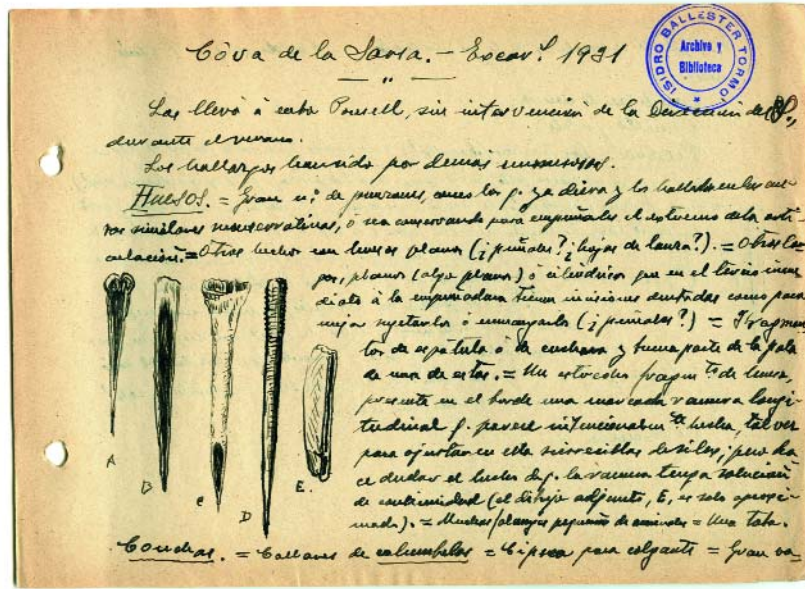 Còva de la Sarsa. — Excavs. 1931
ISIDRO BALLESTER TORMO
Archivo y
Biblioteca
Las llevó á cabo Ponsell, sin intervención de la Dirección del
durante el verano.
Los hallazgos han sido por demas numerosos.
Huesos. = Gran nº de punzones, como los q. ya diera y los hallados en las
similares ó sea conservando para empuñarles el extremo de la arti-
culación. = Otros hechos con huesos planos (¿puñales? ¿hojas de lanza?). = Otros lar-
gos, planos (algo planos) ó cilindricos que en el tercio inme
diato á la empuñadura tienen incisiones dentadas como para
mejor sujetarlos ó enmangarlos (¿puñales?) = Fragmen
tos de espátula ó de cuchara y buena parte de la pala
de una de estas. = Un estrecho fragmto. de hueso,
presenta en el borde una marcada ranura longi
tudinal q. parece intencionadamte. hecha, tal vez
para ajustar en ella sierrecillas de silex; pero ha
ce dudar el hecho de q. la ranura tenga solución
de continuidad (el dibujo adjunto, E, es solo aproxi
mado). = Muchas falanges pequeñas de animales = Una taba.
A
B
C
D
E.
Conchas. = Collares de columbelas = Ciprea para colgante = Gran va-